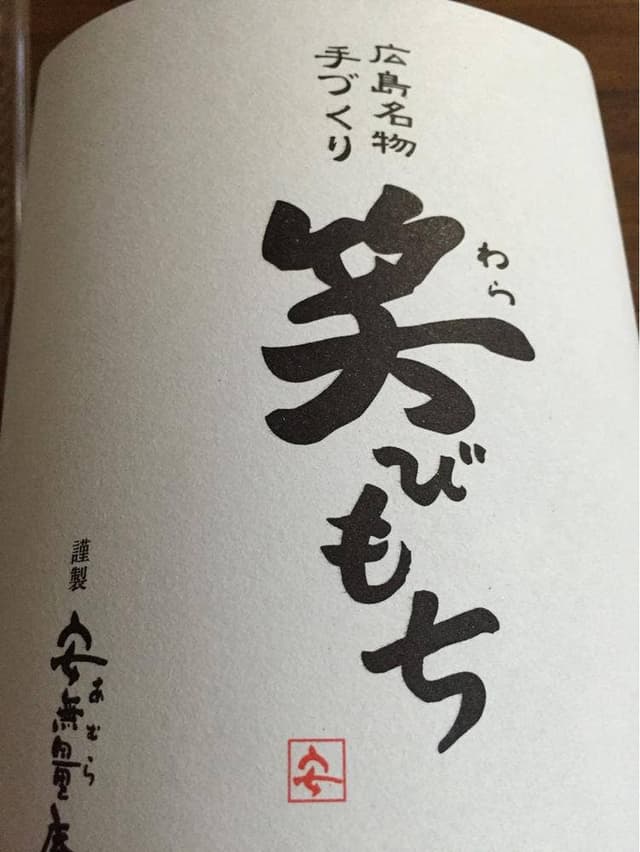 広島名物
手づくり
笑びもち
わら
謹製
安無量庵
あむら
安